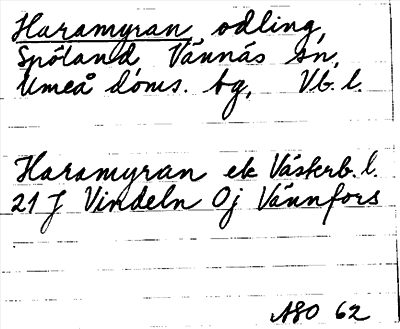 Haramyran, odling,
Spöland, Vännäs sn,
Umeå doms. bg, Vb. l.
Haramyran ek Västerb. l.
21 J Vindeln 0j Vännfors
ASO 62